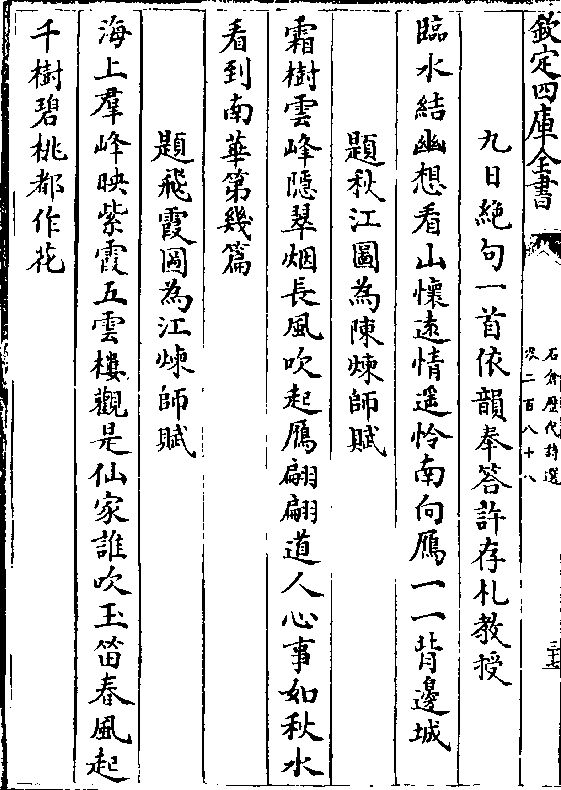 欽定四庫全書
石倉歷代詩選
卷二百八十八
三十七
九日絶句一首依韻奉答許存札教授
臨水結幽想看山懷遠情遥怜南向鴈一一背邊城
題秋江圖為陳煉師賦
霜樹雲峰隠翠烟長風吹起鴈翩翩道人心事如秋水
看到南華第幾篇
題飛霞圖為江煉師賦
海上羣峰映紫霞五雲樓觀是仙家誰吹玉笛春風起
千樹碧桃都作花